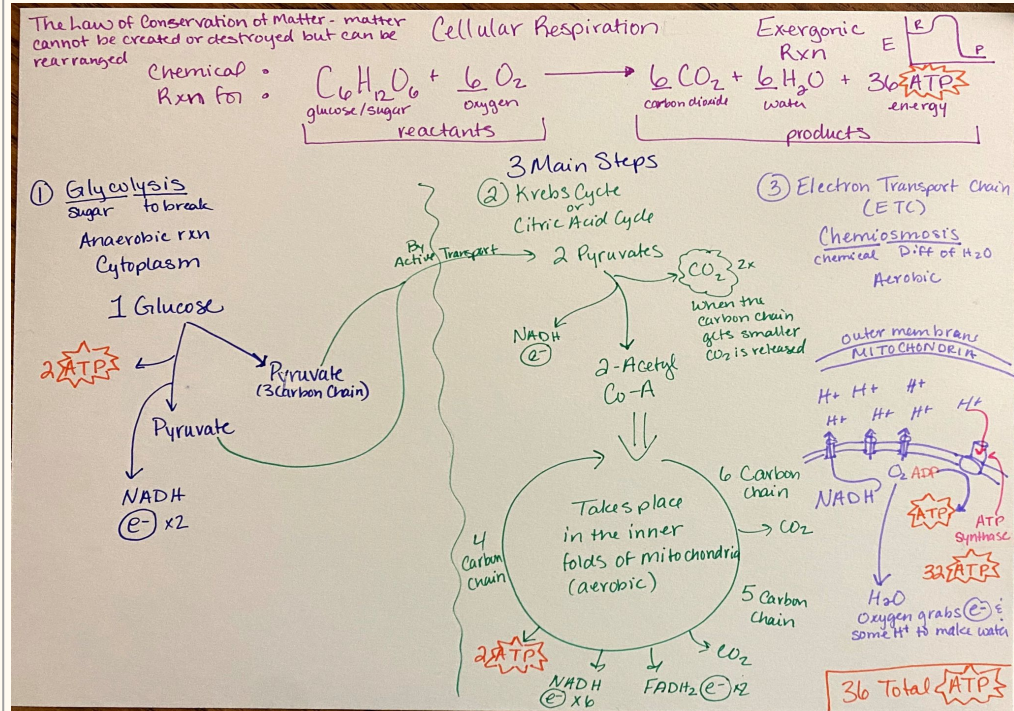 The Law of Conservation of Matter - matter
cannot be created or destroyed but can be
rearranged
Cellular Respiration
Exergonic
Rxn
E
R
P
Chemical
Rxn for :
C6H12O6 + 6 O2 → 6 CO2 + 6 H2O + 36 ATP
glucose/sugar
oxygen
carbon dioxide
water
energy
reactants
products
3 Main Steps
① Glycolysis
sugar to break
Anaerobic rxn
Cytoplasm
1 Glucose
2 ATP
Pyruvate
(3 Carbon Chain)
Pyruvate
NADH
e- x2
By
Active Transport
② Krebs Cycle
or
Citric Acid Cycle
2 Pyruvates
CO2 2x
When the
carbon chain
gets smaller
CO2 is released
NADH
e-
2-Acetyl
Co-A
6 Carbon
chain
CO2
Takes place
in the inner
folds of mitochondria
(aerobic)
4
Carbon
chain
5 Carbon
Chain
CO2
2 ATP
NADH
e- x6
FADH2 e- x2
③ Electron Transport Chain
(ETC)
Chemiosmosis
chemical Diff of H2O
Aerobic
outer membrane
MITOCHONDRIA
H+ H+ H+
H+ H+ H+ H+
NADH
O2 ADP
ATP
ATP
Synthase
32 ATP
H2O
Oxygen grabs e- &
some H+ to make water
36 Total ATP